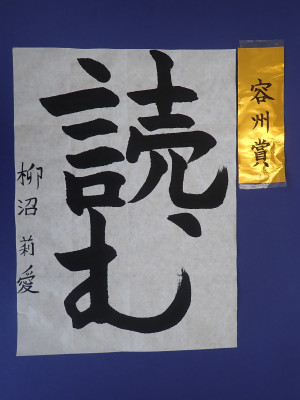 容州賞
読む
柳沼莉愛